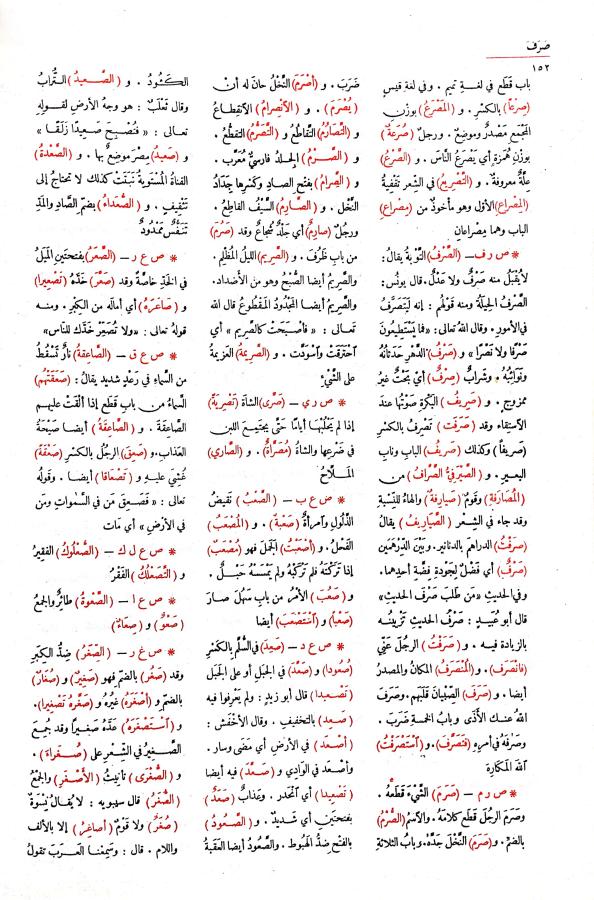 صَرَفَ
١٥٢
باب قَطَع في لغة تميم . وفي لغة قيس
(صِرْعًا) بالكَسْر . و (المَصْرَعُ) بوزن
المَجْمَع مَصْدَرٌ وموضِعٌ . ورجلٌ (صُرَعَةٌ)
بوزْن هُمَزة أي يَصْرَعُ النَّاسَ . و (الصَّرْعُ)
عِلَّةٌ معروفةٌ . و (التَّصْرِيعُ) في الشعر تَقْفِيَةُ
(المِصْراع) الأول وهو مأخوذ من (مِصْراع)
الباب وهما مِصْراعان
* ص ر ف – (الصَّرْفُ) التَّوْبةُ يقال :
لا يُقْبَلُ منه صَرْفٌ ولا عَدْلٌ . قال يونُسُ :
الصَّرْفُ الحِيلَةُ ومنه قَوْلُهم : إنه لَيَتَصَرَّفُ
في الأمور . وقال اللهُ تعالى : «فما يَسْتَطِيعُونَ
صَرْفًا ولا نَصْرًا» و (صَرْفُ) الدَّهْرِ حَدَثانُه
ونَوائِبُه . وشَرابٌ (صِرْفٌ) أي بَحْتٌ غيرُ
ممزوج . و (صَرِيفُ) البَكْرةِ صَوْتُها عند
الآستِقاءِ وقد (صَرَفَت) تَصْرِفُ بالكَسْر
(صَرِيفًا) وكذلك (صَرِيفُ) الباب وناب
البعير . و (الصَّيْرَفِيُّ) (الصَّرَّافُ) من
(المُصَارَفةِ) وقومٌ (صَيارِفةٌ) والهاءُ للنِّسْبة
وقد جاء في الشِّعر (الصَّيارِيفُ) يقالُ
(صَرَفْتُ) الدراهم بالدنانير . وبَيْنَ الدِّرْهَمَين
(صَرْفٌ) أي فَضْلٌ لِجَودةِ فِضَّة أحدِهما .
وفي الحديث «مَن طَلَبَ صَرْفَ الحديثِ»
قال أبو عُبَيد : صَرْفُ الحديثِ تَزْيينُه
بالزيادة فيه . و (صَرَفْتُ) الرجُلَ عَنِّي
(فانْصَرَف) . و (المُنْصَرَفُ) المكانُ والمصدرُ
أيضا . و (صَرَفَ) الصِّبْيانَ قَلَبَهم . وصَرَفَ
اللهُ عنك الأَذَى وبابُ الخمسة ضَرَبَ .
وصَرَّفَه في أمره (فتَصَرَّفَ) . و (آستَصْرَفْتُ)
اللهَ المَكارِهَ
* ص ر م – (صَرَمَ) الشَّيْءَ قَطَعَهُ .
وصَرَمَ الرجُلَ قَطَعَ كلامَهُ . والآسمُ (الصُّرْمُ)
بالضم . و (صَرَمَ) النَّخْلَ جَدَّه . وبابُ الثلاثة
ضَرَبَ . و (أَصْرَمَ) النَّخْلُ حانَ له أن
(يُصْرَمَ) . و (الآنْصِرامُ) الآنْقِطاعُ
و (التَّصارُمُ) التَّقاطُعُ و (التَّصَرُّمُ) التَّقَطُّعُ .
و (الصَّرْمُ) الجِلْدُ فارسيٌّ مُعَرَّب .
و (الصِّرامُ) بفتح الصادِ وكَسْرها جِدَادُ
النَّخْل . و (الصارِمُ) السَّيْفُ القاطِعُ .
ورجُلٌ (صارِمٌ) أي جَلْدٌ شُجاعٌ وقد (صَرُمَ)
من بابِ ظَرُفَ . و (الصَّرِيم) الليلُ المُظْلِم .
والصَّرِيمُ أيضا الصُّبْحُ وهو من الأضداد .
والصَّرِيمُ أيضا المَجْدُودُ المَقْطوعُ قال اللهُ
تعالى : « فأصْبَحَتْ كالصَّرِيم » أي
آحْتَرَقَتْ وآسْوَدَّت . و (الصَّرِيمةُ) العَزِيمةُ
على الشَّيْءِ
* ص ر ي – (صَرَّى) الشاةَ (تَصْرِيةً)
إذا لم يَحْلُبْها أيَّامًا حَتَّى يَجْتَمِعَ اللبن
في ضَرْعها والشاةُ (مُصَرَّاةٌ) . و (الصَّارِي)
المَلَّاحُ
* ص ع ب – (الصَّعْبُ) نَقِيضُ
الذَّلُولِ وآمرأةٌ (صَعْبةٌ) . و (المُصْعَبُ)
الفَحْلُ . و (أَصْعَبْتُ) الجَمَلَ فهو (مُصْعَبٌ)
إذا تَرَكْتَهُ فلم تَرْكَبْهُ ولم يَمْسَسْهُ حَبْلٌ .
و (صَعُبَ) الأمْرُ من بابِ سَهُلَ صار
(صَعْبًا) و (آسْتَصْعَبَ) أيضا
* ص ع د – (صَعِدَ) في السُّلَّم بالكَسْرِ
(صُعُودًا) و (صَعَّدَ) في الجَبَل أو على الجَبَل
(تَصْعيدا) قال أبو زيدٍ : ولم يَعْرِفوا فيه
(صَعِد) بالتخفيف . وقال الأخْفَش :
(أَصْعَد) في الأرضِ أي مَضَى وسار .
وأصْعَد في الوادي و (صَعَّدَ) فيه أيضا
(تَصْعِيدا) أي آنْحَدَر . وعذابٌ (صَعَدٌ)
بفتحتين أي شَدِيدٌ . و (الصَّعُودُ)
بالفتح ضِدُّ الهَبُوط . والصَّعُودُ أيضا العَقَبةُ
الكَئُودُ . و (الصَّعِيدُ) التُّرابُ
وقال ثَعْلَبٌ : هو وجهُ الأرضِ لقوله
تعالى : « فتُصْبِحَ صَعِيدًا زَلَقًا »
و (صَعيدُ) مِصْرَ موضِعٌ بها . و (الصَّعْدةُ)
القَناةُ المُسْتَوِيةُ نَبَتَتْ كذلك لا تَحْتاجُ إلى
تَثْقِيف . و (الصُّعَداءُ) بضم الصَّادِ والمَدِّ
تَنَفُّسٌ مَمْدُودٌ
* ص ع ر – (الصَّعَرُ) بفتحتين المَيْلُ
في الخَدِّ خاصَّةً وقد (صَعَّرَ) خَدَّه (تَصْعِيرا)
و (صاعَرَهُ) أي أماله من الكِبْر . ومنه
قولهُ تعالى : «ولا تُصَعِّرْ خَدَّكَ للناس»
* ص ع ق – (الصاعقةُ) نارٌ تَسْقُطُ
من السماءِ في رَعْدٍ شديدٍ يقالُ : (صَعَقَتْهُم)
السَّماءُ من بابِ قَطَع إذا ألْقَتْ عليهم
الصَّاعِقةَ . و (الصَّاعِقةُ) أيضا صَيْحَةُ
العَذاب . و (صَعِقَ) الرجُلُ بالكَسْرِ (صَعْقةً)
غُشِيَ عليهِ و (تَصْعاقًا) أيضا . وقولُه
تعالى : « فَصَعِقَ مَن في السَّمَوات ومَن
في الأرضِ » أي مات
* ص ع ل ك – (الصُّعْلُوكُ) الفقيرُ
و (التَّصَعْلُكُ) الفَقْرُ
* ص ع ا – (الصَّعْوةُ) طائرٌ والجمعُ
(صَعْوٌ) و (صِعاءٌ)
* ص غ ر – (الصِّغَرُ) ضِدُّ الكِبَر
وقد (صَغُرَ) بالضم فهو (صَغِيرٌ) و (صُغارٌ)
بالضم و (أَصْغَرَهُ) غَيْرُه و (صَغَّره تَصْغِيرا) .
و (آسْتَصْغَرَهُ) عَدَّه صَغيرًا وقد جُمِعَ
الصَّغِيرُ في الشِّعرِ على (صُغَراء) .
و (الصُّغْرَى) تأنيثُ (الأصْغَرِ) والجمعُ
(الصُّغَرُ) قال سيبويه : لا يُقالُ نِسْوَةٌ
(صُغَرٌ) ولا قَومٌ (أصاغِرُ) إلا بالألف
واللام . قال : وسَمِعْنا العَرَبَ تقولُ